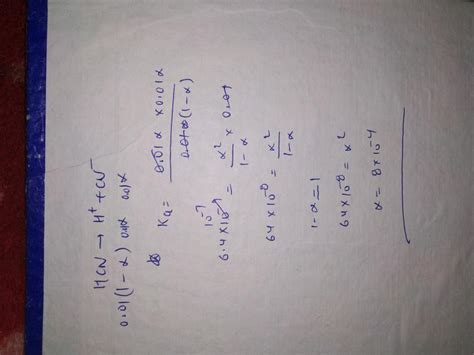 HCN → H⁺ + CN⁻
0.01(1-α) 0.01α 0.01α
Ka = 0.01α × 0.01α / 0.01(1-α)
10⁻⁷
6.4×10⁻⁹ = α² / 1-α × 0.01
64×10⁻⁸ = α² / 1-α
1-α = 1
64×10⁻⁸ = α²
α = 8×10⁻⁴